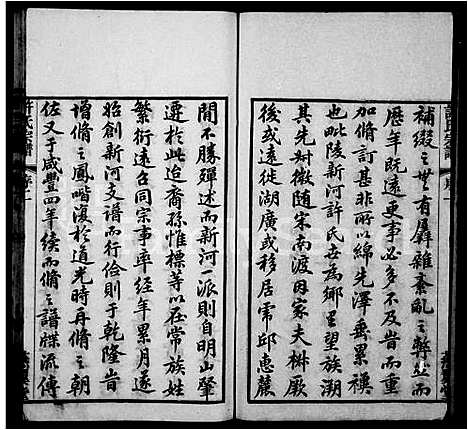 補綴之其有羼雜紊亂之弊並而
歷年既遠更事必多不及昔而重
加脩訂甚非所以綿先澤垂累禩
也毗陵新河許氏世為鄉里望族溯
其先對徵隨宋南渡因家夫椒厥
後或遠徙湖廣或移居常邱惠麓
間不勝殫述而新河一派則自明山肇
遷於此迨裔孫惟標等以在常族姓
繁衍遠召同宗事率經年累月遂
始創新河支譜而行僉則于乾隆昔
增脩之鳳喈復於道光時再脩之朝
佐又于咸豐四年續而脩之譜牒流傳
許氏宗譜
序二